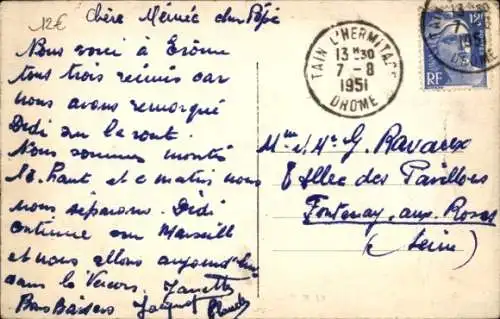 12€
chère Mémée cher Pépé
Nous voici à Erôme
tous trois réunis car
nous avons remorqué
Dédi sur la route.
Nous sommes montés
là-haut et ce matin nous
nous séparons. Dédi
continue sur Marseille
et nous allons aujourd'hui
dans le Vercors. Janette
Bons Baisers Jacquot Claude
TAIN L'HERMITAGE
13 H 30
7 - 8
1951
DROME
RF
12F
Mme et Mr G. Ravarex
8 Allée des Pavillons
Fontenay-aux-Roses
(Seine)